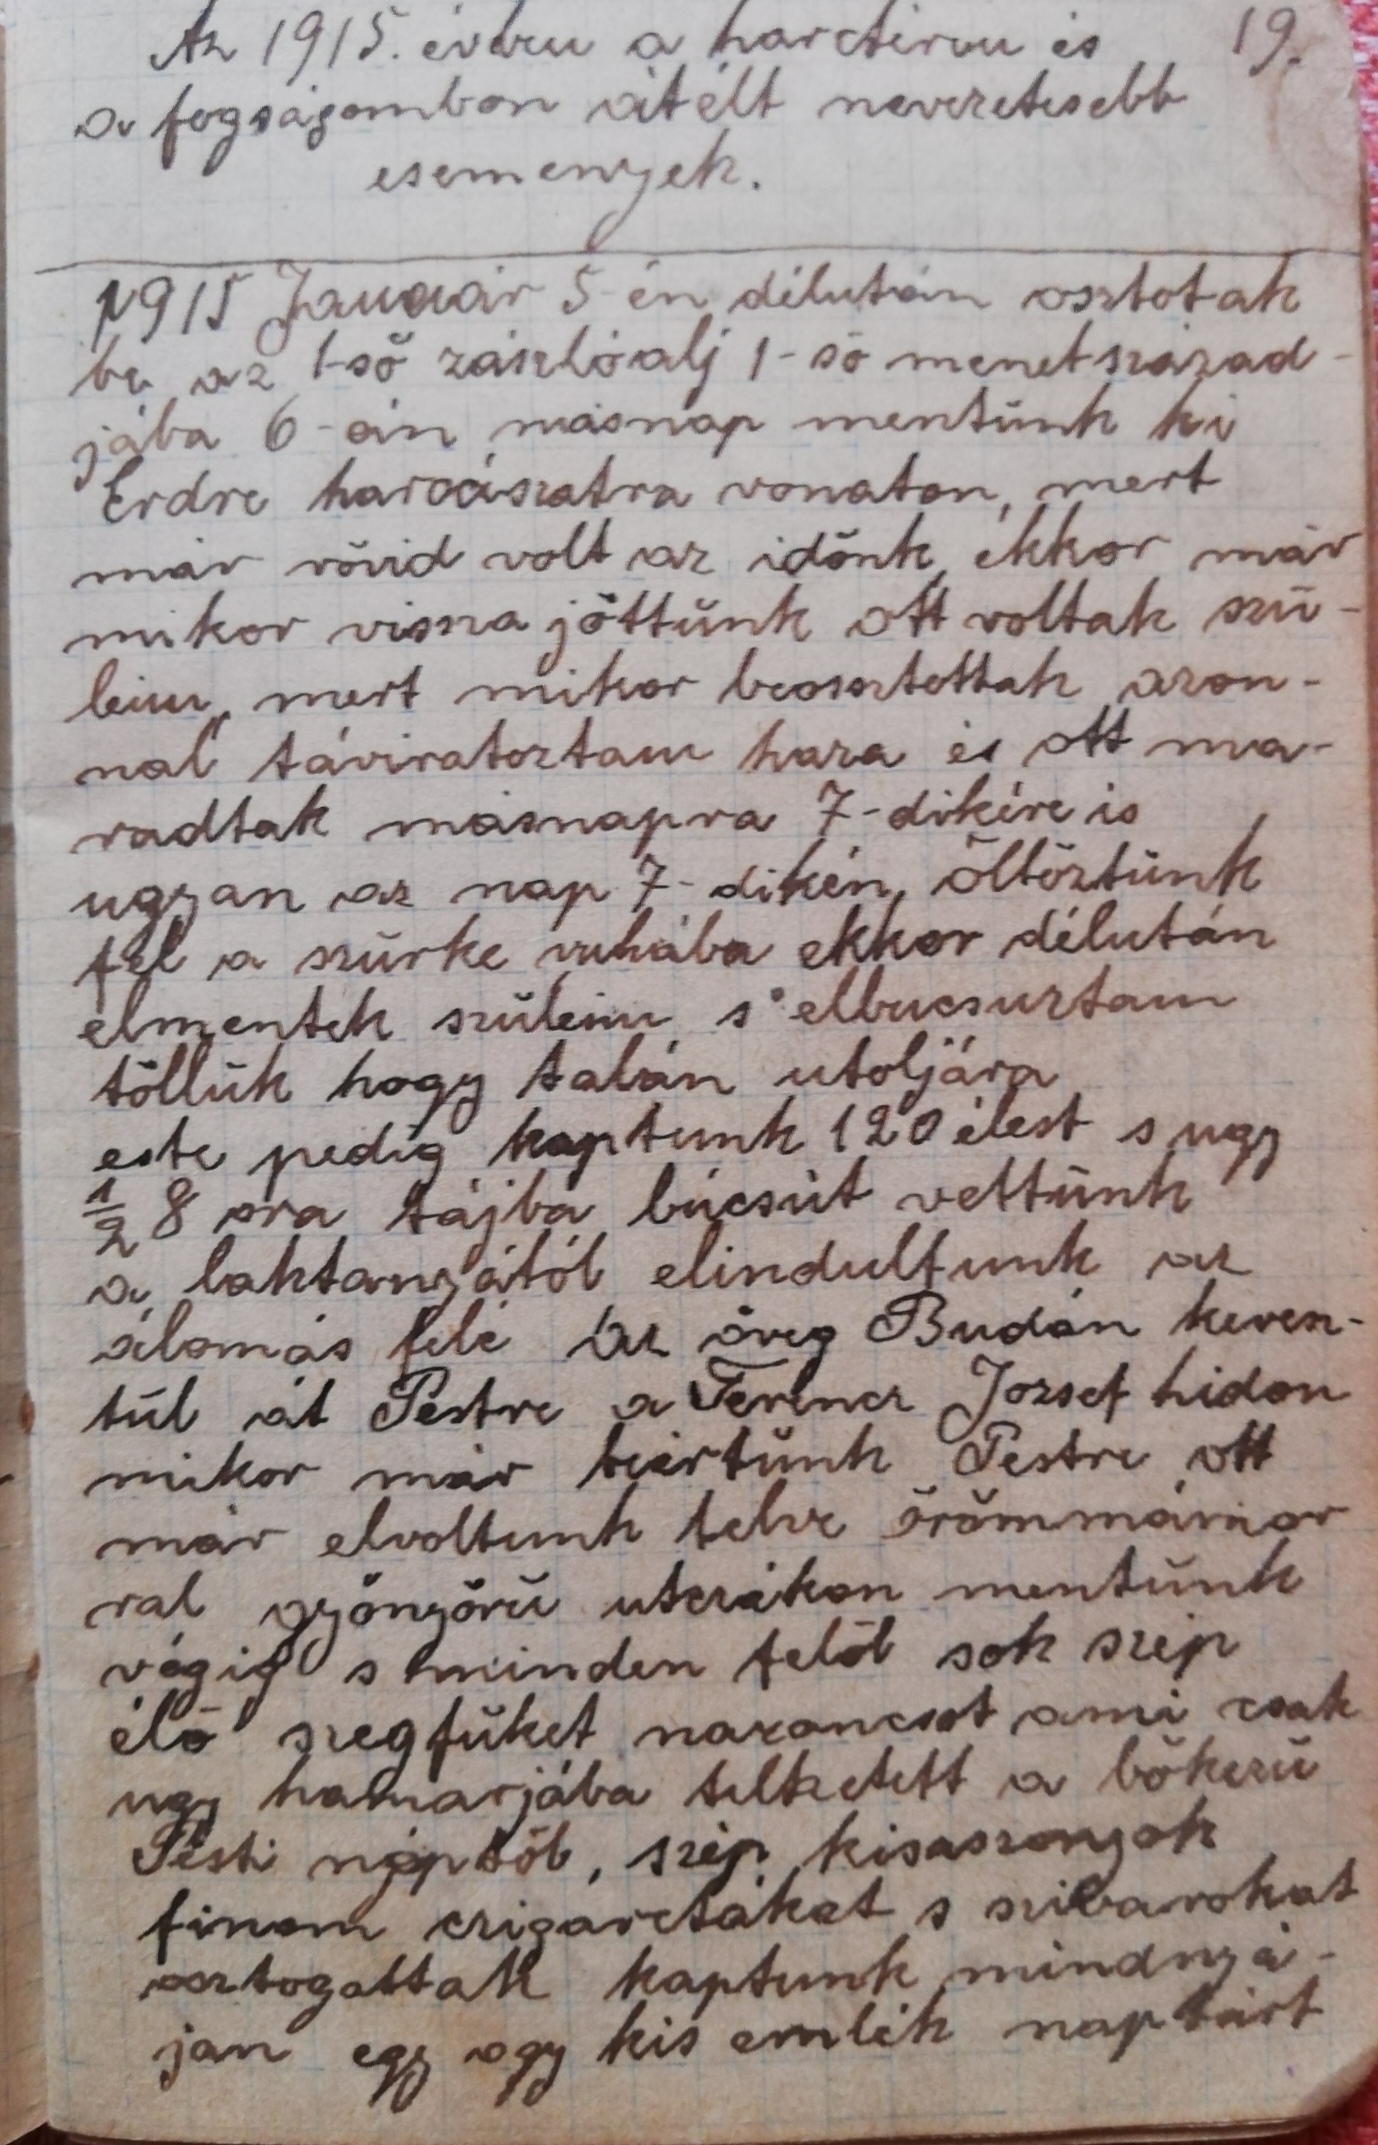 Az 1915. évben a harctéren és 19.
a fogságomban átélt nevezetesebb
esemenyek.
1915 Január 5-én délután osztotak
be az 1-ső zászlóalj 1-ső menetszázad-
jába 6-án másnap mentünk ki
Erdre harcászatra vonaton, mert
már rövid volt az időnk, ekkor már
mikor vissza jöttünk ott voltak szü-
leim, mert mikor beosztottak azon-
nal táviratoztam haza és ott ma-
radtak másnapra 7-dikére is
ugyan az nap 7-dikén, öltöztünk
fel a szürke ruhába ekkor délután
elmentek szüleim s elbucsuztam
töllük hogy talán utoljára
este pedig kaptunk 120 élest s ugy
1/2 8 ora tájba búcsút vettünk
a laktanyától elindultunk az
álomás felé az öreg Budán keresz-
tül át Pestre a Ferencz Jozsef hidon
mikor már beértünk Pestre ott
már elvoltunk telve örömmámor
ral gyönyörü utczákon mentünk
végig s minden felöl sok szép
élö szegfüket narancsot ami csak
ugy hamarjába telhetett a bökezü
Pesti néptöl, szép kisaszonyok
finom czigaretákat s szivarokat
osztogattak kaptunk mindnyá-
jan egy egy kis emlék naptárt